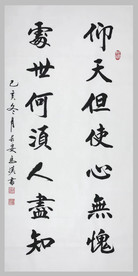 仰天但使心無愧
處世何須人盡知
己亥冬月
書